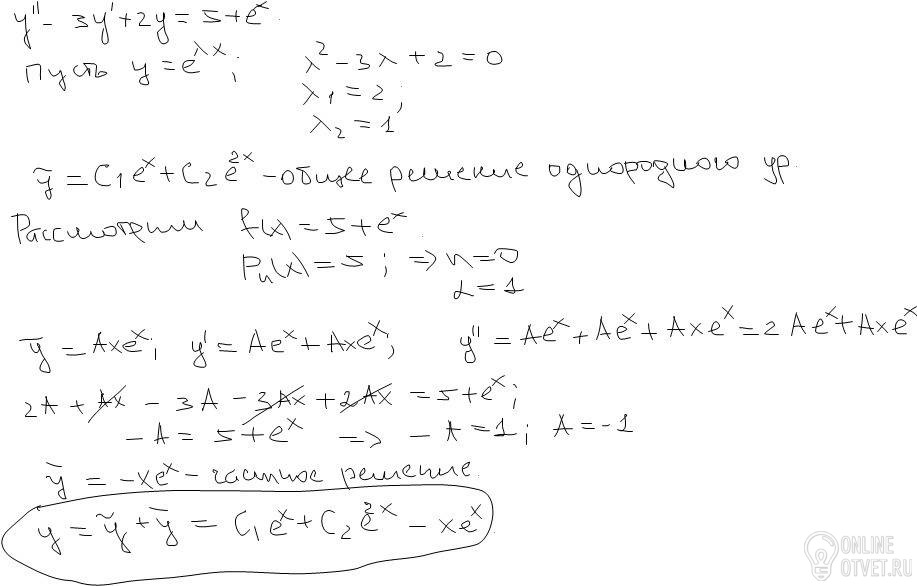 y'' - 3y' + 2y = 5 + e^x.
Пусть y = e^{λx}; λ^2 - 3λ + 2 = 0
λ1 = 2;
λ2 = 1
ỹ = C1e^x + C2e^{2x} - общее решение однородного ур.
Рассмотрим f(x) = 5 + e^x.
Pn(x) = 5; => n = 0
α = 1
ȳ = Axe^x; y' = Ae^x + Axe^x; y'' = Ae^x + Ae^x + Axe^x = 2Ae^x + Axe^x
2A + Ax - 3A - 3Ax + 2Ax = 5 + e^x;
-A = 5 + e^x => -A = 1; A = -1
ȳ = -xe^x - частное решение.
y = ỹ + ȳ = C1e^x + C2e^{2x} - xe^x
ONLINE
OTVET.RU